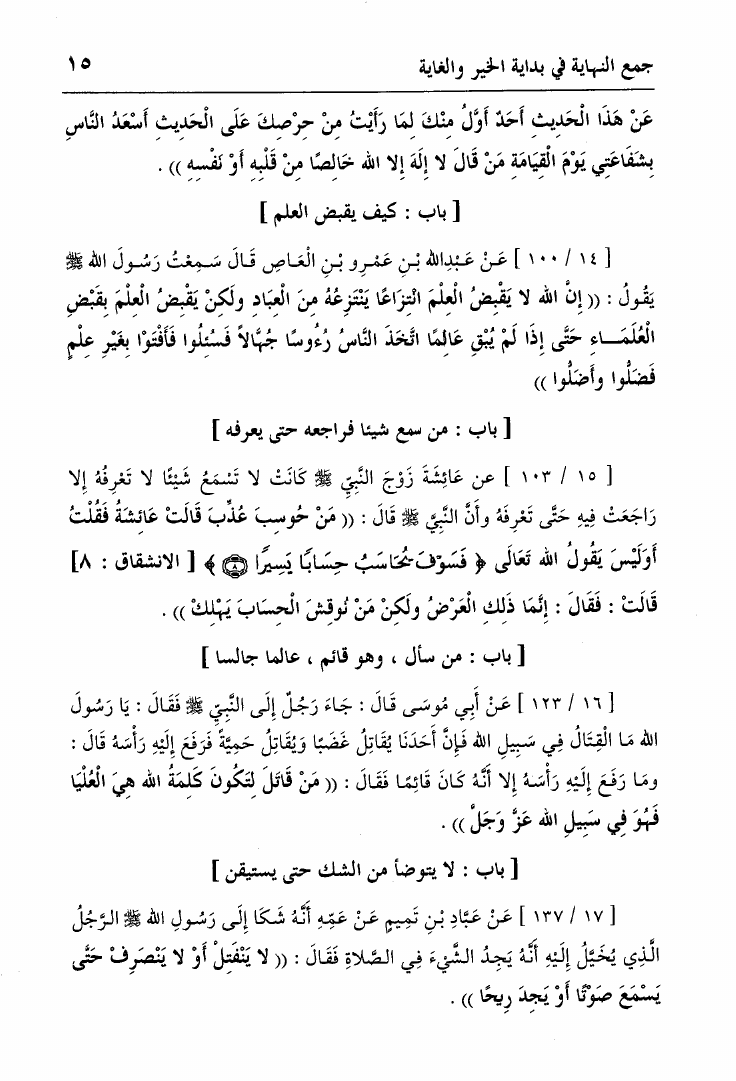 جمع النهاية في بداية الخير والغاية ١٥
عَنْ هَذَا الْحَدِيثِ أَحَدٌ أَوَّلُ مِنْكَ لِمَا رَأَيْتُ مِنْ حِرْصِكَ عَلَى الْحَدِيثِ أَسْعَدُ النَّاسِ
بِشَفَاعَتِي يَوْمَ الْقِيَامَةِ مَنْ قَالَ لا إِلَهَ إِلا الله خَالِصًا مِنْ قَلْبِهِ أَوْ نَفْسِهِ )) .
[ باب : كيف يقبض العلم ]
[ ١٤ / ١٠٠ ] عَنْ عَبْدِالله بْنِ عَمْرِو بْنِ الْعَاصِ قَالَ سَمِعْتُ رَسُولَ الله ﷺ
يَقُولُ : (( إِنَّ الله لا يَقْبِضُ الْعِلْمَ انْتِزَاعًا يَنْتَزِعُهُ مِنَ الْعِبَادِ ولَكِنْ يَقْبِضُ الْعِلْمَ بِقَبْضِ
الْعُلَمَـــاءِ حَتَّى إِذَا لَمْ يُبْقِ عَالِمًا اتَّخَذَ النَّاسُ رُءُوسًا جُهَّالاً فَسُئِلُوا فَأَفْتَوْا بِغَيْرِ عِلْمٍ
فَضَلُّوا وأَضَلُّوا ))
[ باب : من سمع شيئا فراجعه حتى يعرفه ]
[ ١٥ / ١٠٣ ] عن عَائِشَةَ زَوْجَ النَّبِيِّ ﷺ كَانَتْ لا تَسْمَعُ شَيْئًا لا تَعْرِفُهُ إِلا
رَاجَعَتْ فِيهِ حَتَّى تَعْرِفَهُ وأَنَّ النَّبِيَّ ﷺ قَالَ : (( مَنْ حُوسِبَ عُذِّبَ قَالَتْ عَائِشَةُ فَقُلْتُ
أَوَلَيْسَ يَقُولُ الله تَعَالَى ﴿ فَسَوْفَ يُحَاسَبُ حِسَابًا يَسِيرًا ۝٨ ﴾ [ الانشقاق : ٨]
قَالَتْ : فَقَالَ : إِنَّمَا ذَلِكِ الْعَرْضُ ولَكِنْ مَنْ نُوقِشَ الْحِسَابَ يَهْلِكْ )) .
[ باب : من سأل ، وهو قائم ، عالما جالسا ]
[ ١٦ / ١٢٣ ] عَنْ أَبِي مُوسَى قَالَ : جَاءَ رَجُلٌ إِلَى النَّبِيِّ ﷺ فَقَالَ : يَا رَسُولَ
الله مَا الْقِتَالُ فِي سَبِيلِ الله فَإِنَّ أَحَدَنَا يُقَاتِلُ غَضَبًا وَيُقَاتِلُ حَمِيَّةً فَرَفَعَ إِلَيْهِ رَأْسَهُ قَالَ :
ومَا رَفَعَ إِلَيْهِ رَأْسَهُ إِلا أَنَّهُ كَانَ قَائِمًا فَقَالَ : (( مَنْ قَاتَلَ لِتَكُونَ كَلِمَةُ الله هِيَ الْعُلْيَا
فَهُوَ فِي سَبِيلِ الله عَزَّ وَجَلَّ )) .
[ باب : لا يتوضأ من الشك حتى يستيقن ]
[ ١٧ / ١٣٧ ] عَنْ عَبَّادِ بْنِ تَمِيمٍ عَنْ عَمِّهِ أَنَّهُ شَكَا إِلَى رَسُولِ الله ﷺ الرَّجُلُ
الَّذِي يُخَيَّلُ إِلَيْهِ أَنَّهُ يَجِدُ الشَّيْءَ فِي الصَّلاةِ فَقَالَ : (( لا يَنْفَتِلْ أَوْ لا يَنْصَرِفْ حَتَّى
يَسْمَعَ صَوْتًا أَوْ يَجِدَ رِيحًا )) .